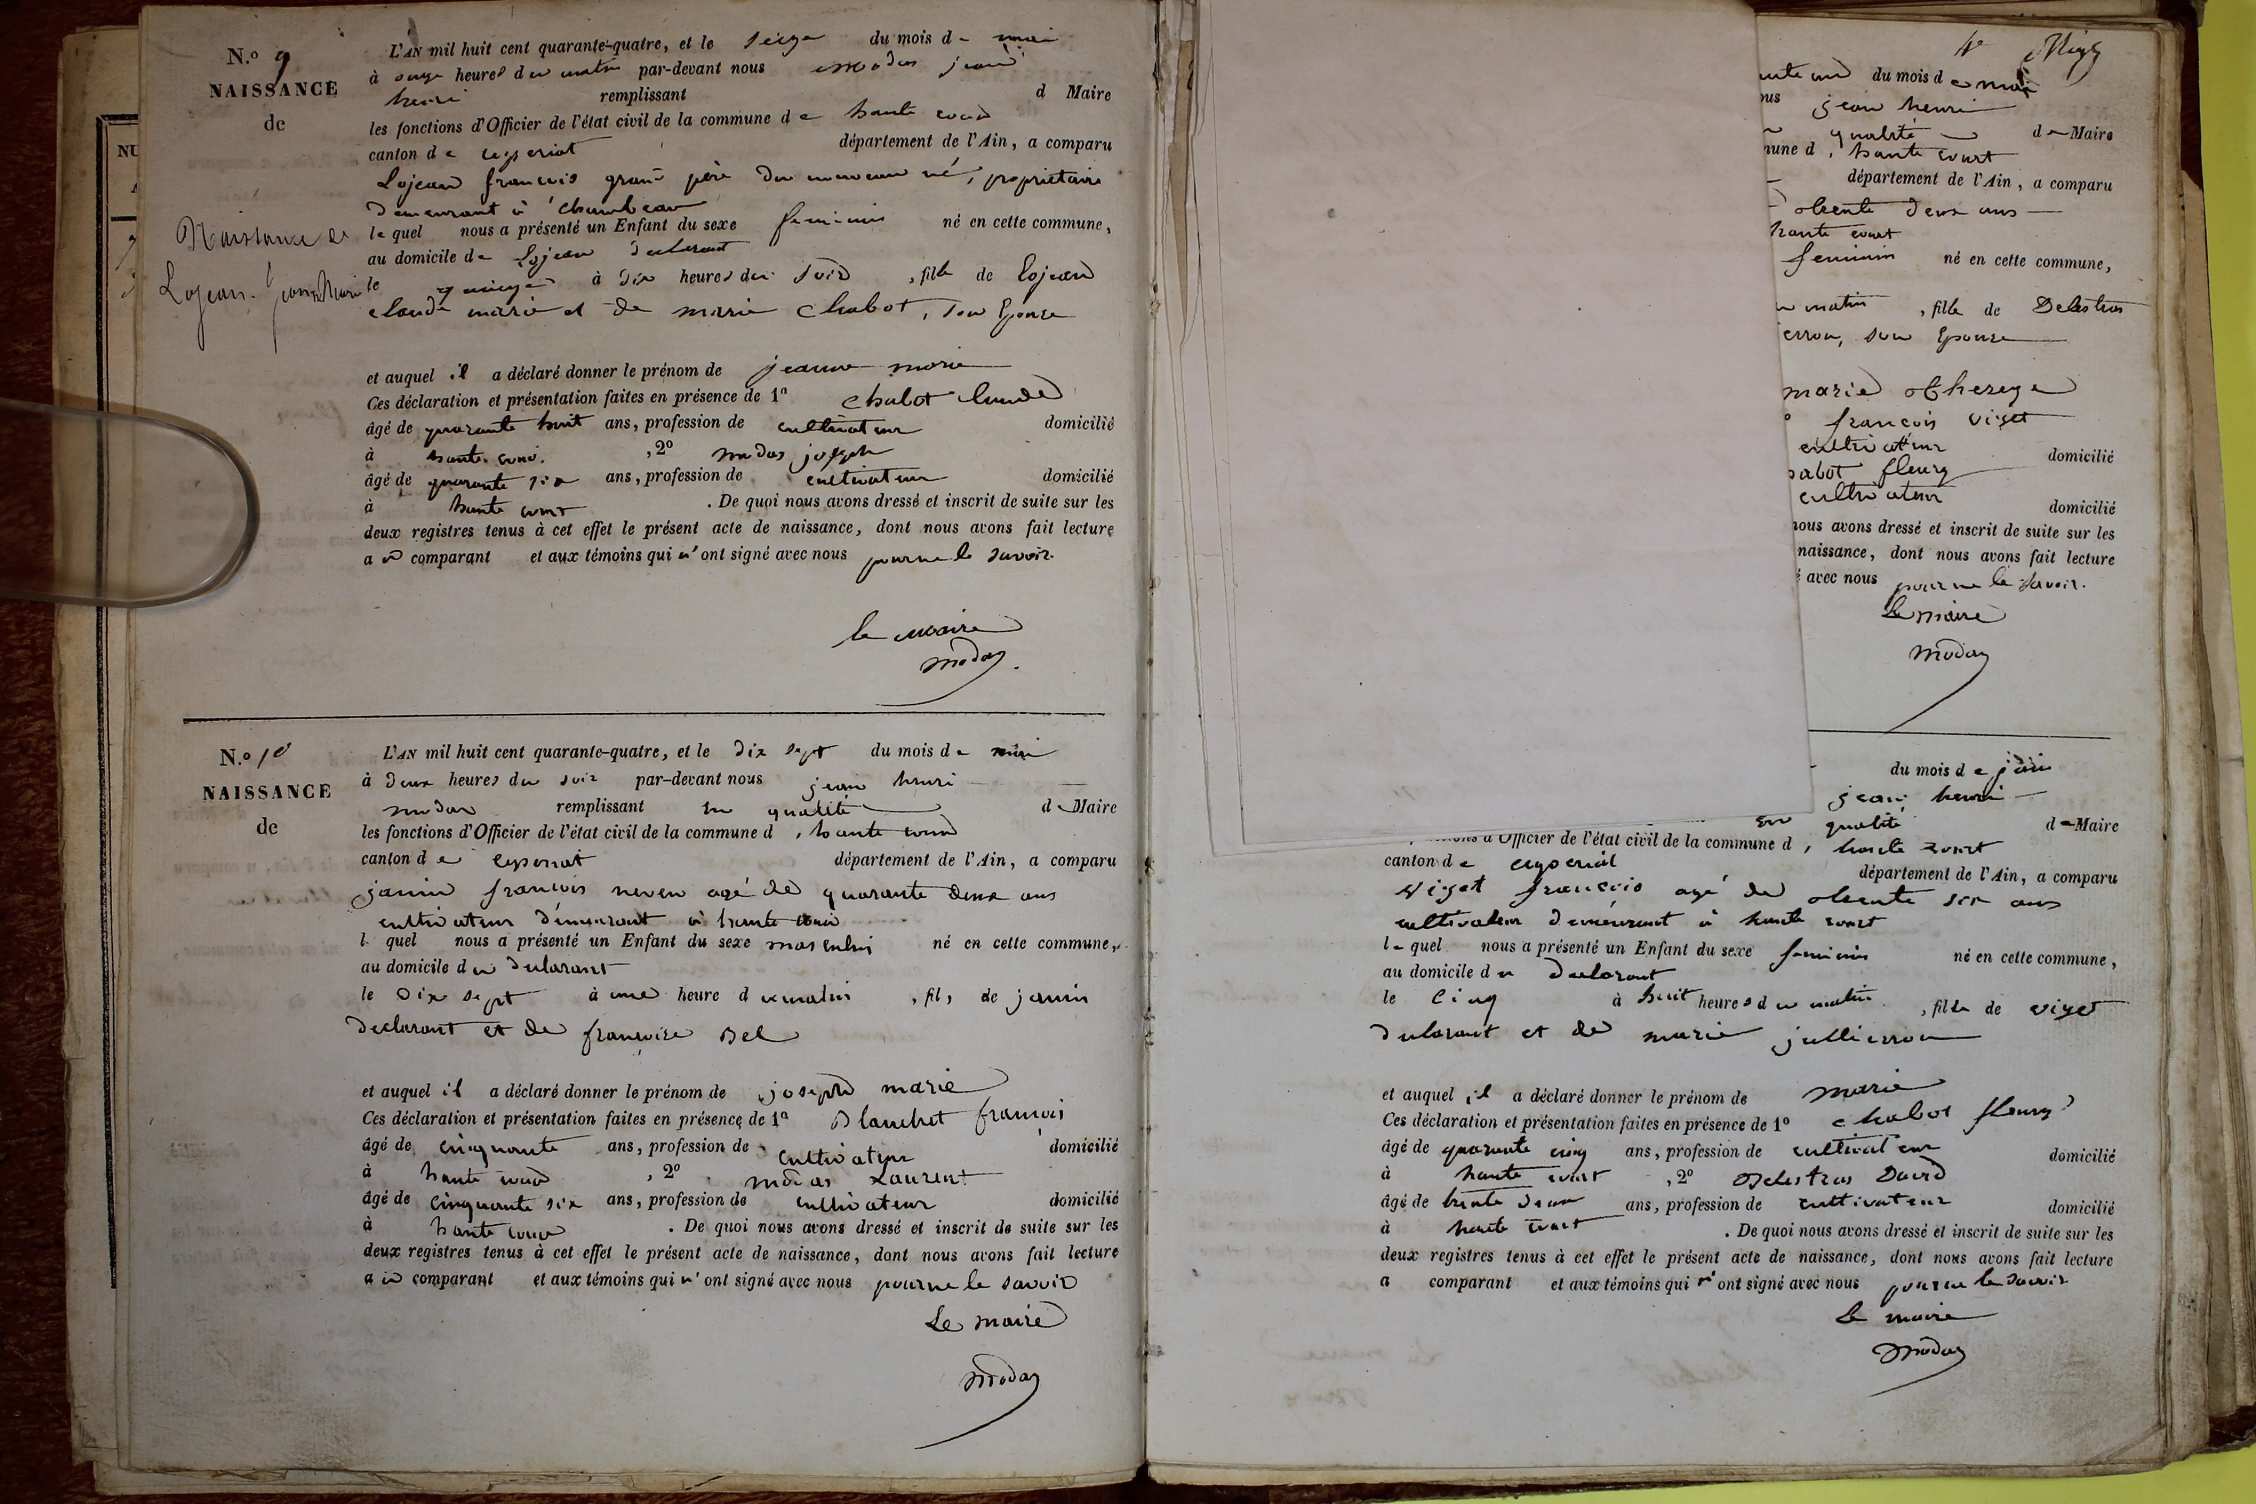 N.o 9
NAISSANCE
de
Naissance de
Lojean jeanne Marie
L'AN mil huit cent quarante-quatre, et le seize du mois de mai
à onze heures du matin par-devant nous modas jean
henri remplissant d Maire
les fonctions d'Officier de l'état civil de la commune de haute cour
canton de ceyseriat département de l'Ain, a comparu
Lojean francois grand père du nouveau né, propriétaire
demeurant à chambeau
lequel nous a présenté un Enfant du sexe feminin né en cette commune,
au domicile de Lojean declarant
le quinze à dix heures du soir, fille de Lojean
claude marie et de marie chabot, son Epouse
et auquel il a déclaré donner le prénom de jeanne marie
Ces déclaration et présentation faites en présence de 1o chabot claude
âgé de quarante huit ans, profession de cultivateur domicilié
à haute cour, 2o modas joseph
âgé de quarante six ans, profession de cultivateur domicilié
à haute court. De quoi nous avons dressé et inscrit de suite sur les
deux registres tenus à cet effet le présent acte de naissance, dont nous avons fait lecture
au comparant et aux témoins qui n'ont signé avec nous pour ne le savoir.
le maire
modas
N.o 10
NAISSANCE
de
L'AN mil huit cent quarante-quatre, et le dix sept du mois de mai
à deux heures du soir par-devant nous jean henri
modas remplissant en qualité de Maire
les fonctions d'Officier de l'état civil de la commune d, haute cour
canton de ceyseriat département de l'Ain, a comparu
janin francois neveu agé de quarante deux ans
cultivateur demeurant à haute cour
l quel nous a présenté un Enfant du sexe masculin né en cette commune,
au domicile du declarant
le dix sept à une heure du matin, fils de janin
declarant et de francoise Bel
et auquel il a déclaré donner le prénom de joseph marie
Ces déclaration et présentation faites en présence de 1o Blanchet francois
âgé de cinquante ans, profession de cultivateur domicilié
à haute cour, 2o modas Laurent
âgé de cinquante six ans, profession de cultivateur domicilié
à haute cour. De quoi nous avons dressé et inscrit de suite sur les
deux registres tenus à cet effet le présent acte de naissance, dont nous avons fait lecture
au comparant et aux témoins qui n'ont signé avec nous pour ne le savoir
Le maire
modas
du mois de mai
jean henri
qualité de Maire
haute court
département de l'Ain, a comparu
deux ans
haute court
feminin né en cette commune,
matin, fille de Delestras
son Epouse
marie
francois viget
cultivateur domicilié
fleury
cultivateur domicilié
nous avons dressé et inscrit de suite sur les
naissance, dont nous avons fait lecture
avec nous pour ne le savoir.
Le maire
modas
du mois de juin
jean henri
en qualité de Maire
Officier de l'état civil de la commune d, haute court
canton de ceyseriat département de l'Ain, a comparu
viget francois agé de trente six ans
cultivateur demeurant à haute court
lequel nous a présenté un Enfant du sexe feminin né en cette commune,
au domicile du declarant
le cinq à huit heures du matin, fille de viget
declarant et de marie jullierron
et auquel il a déclaré donner le prénom de marie
Ces déclaration et présentation faites en présence de 1o chabot fleury
âgé de quarante cinq ans, profession de cultivateur domicilié
à haute court, 2o Delestras David
âgé de trente deux ans, profession de cultivateur domicilié
à haute court. De quoi nous avons dressé et inscrit de suite sur les
deux registres tenus à cet effet le présent acte de naissance, dont nous avons fait lecture
a comparant et aux témoins qui n'ont signé avec nous pour ne le savoir
le maire
modas